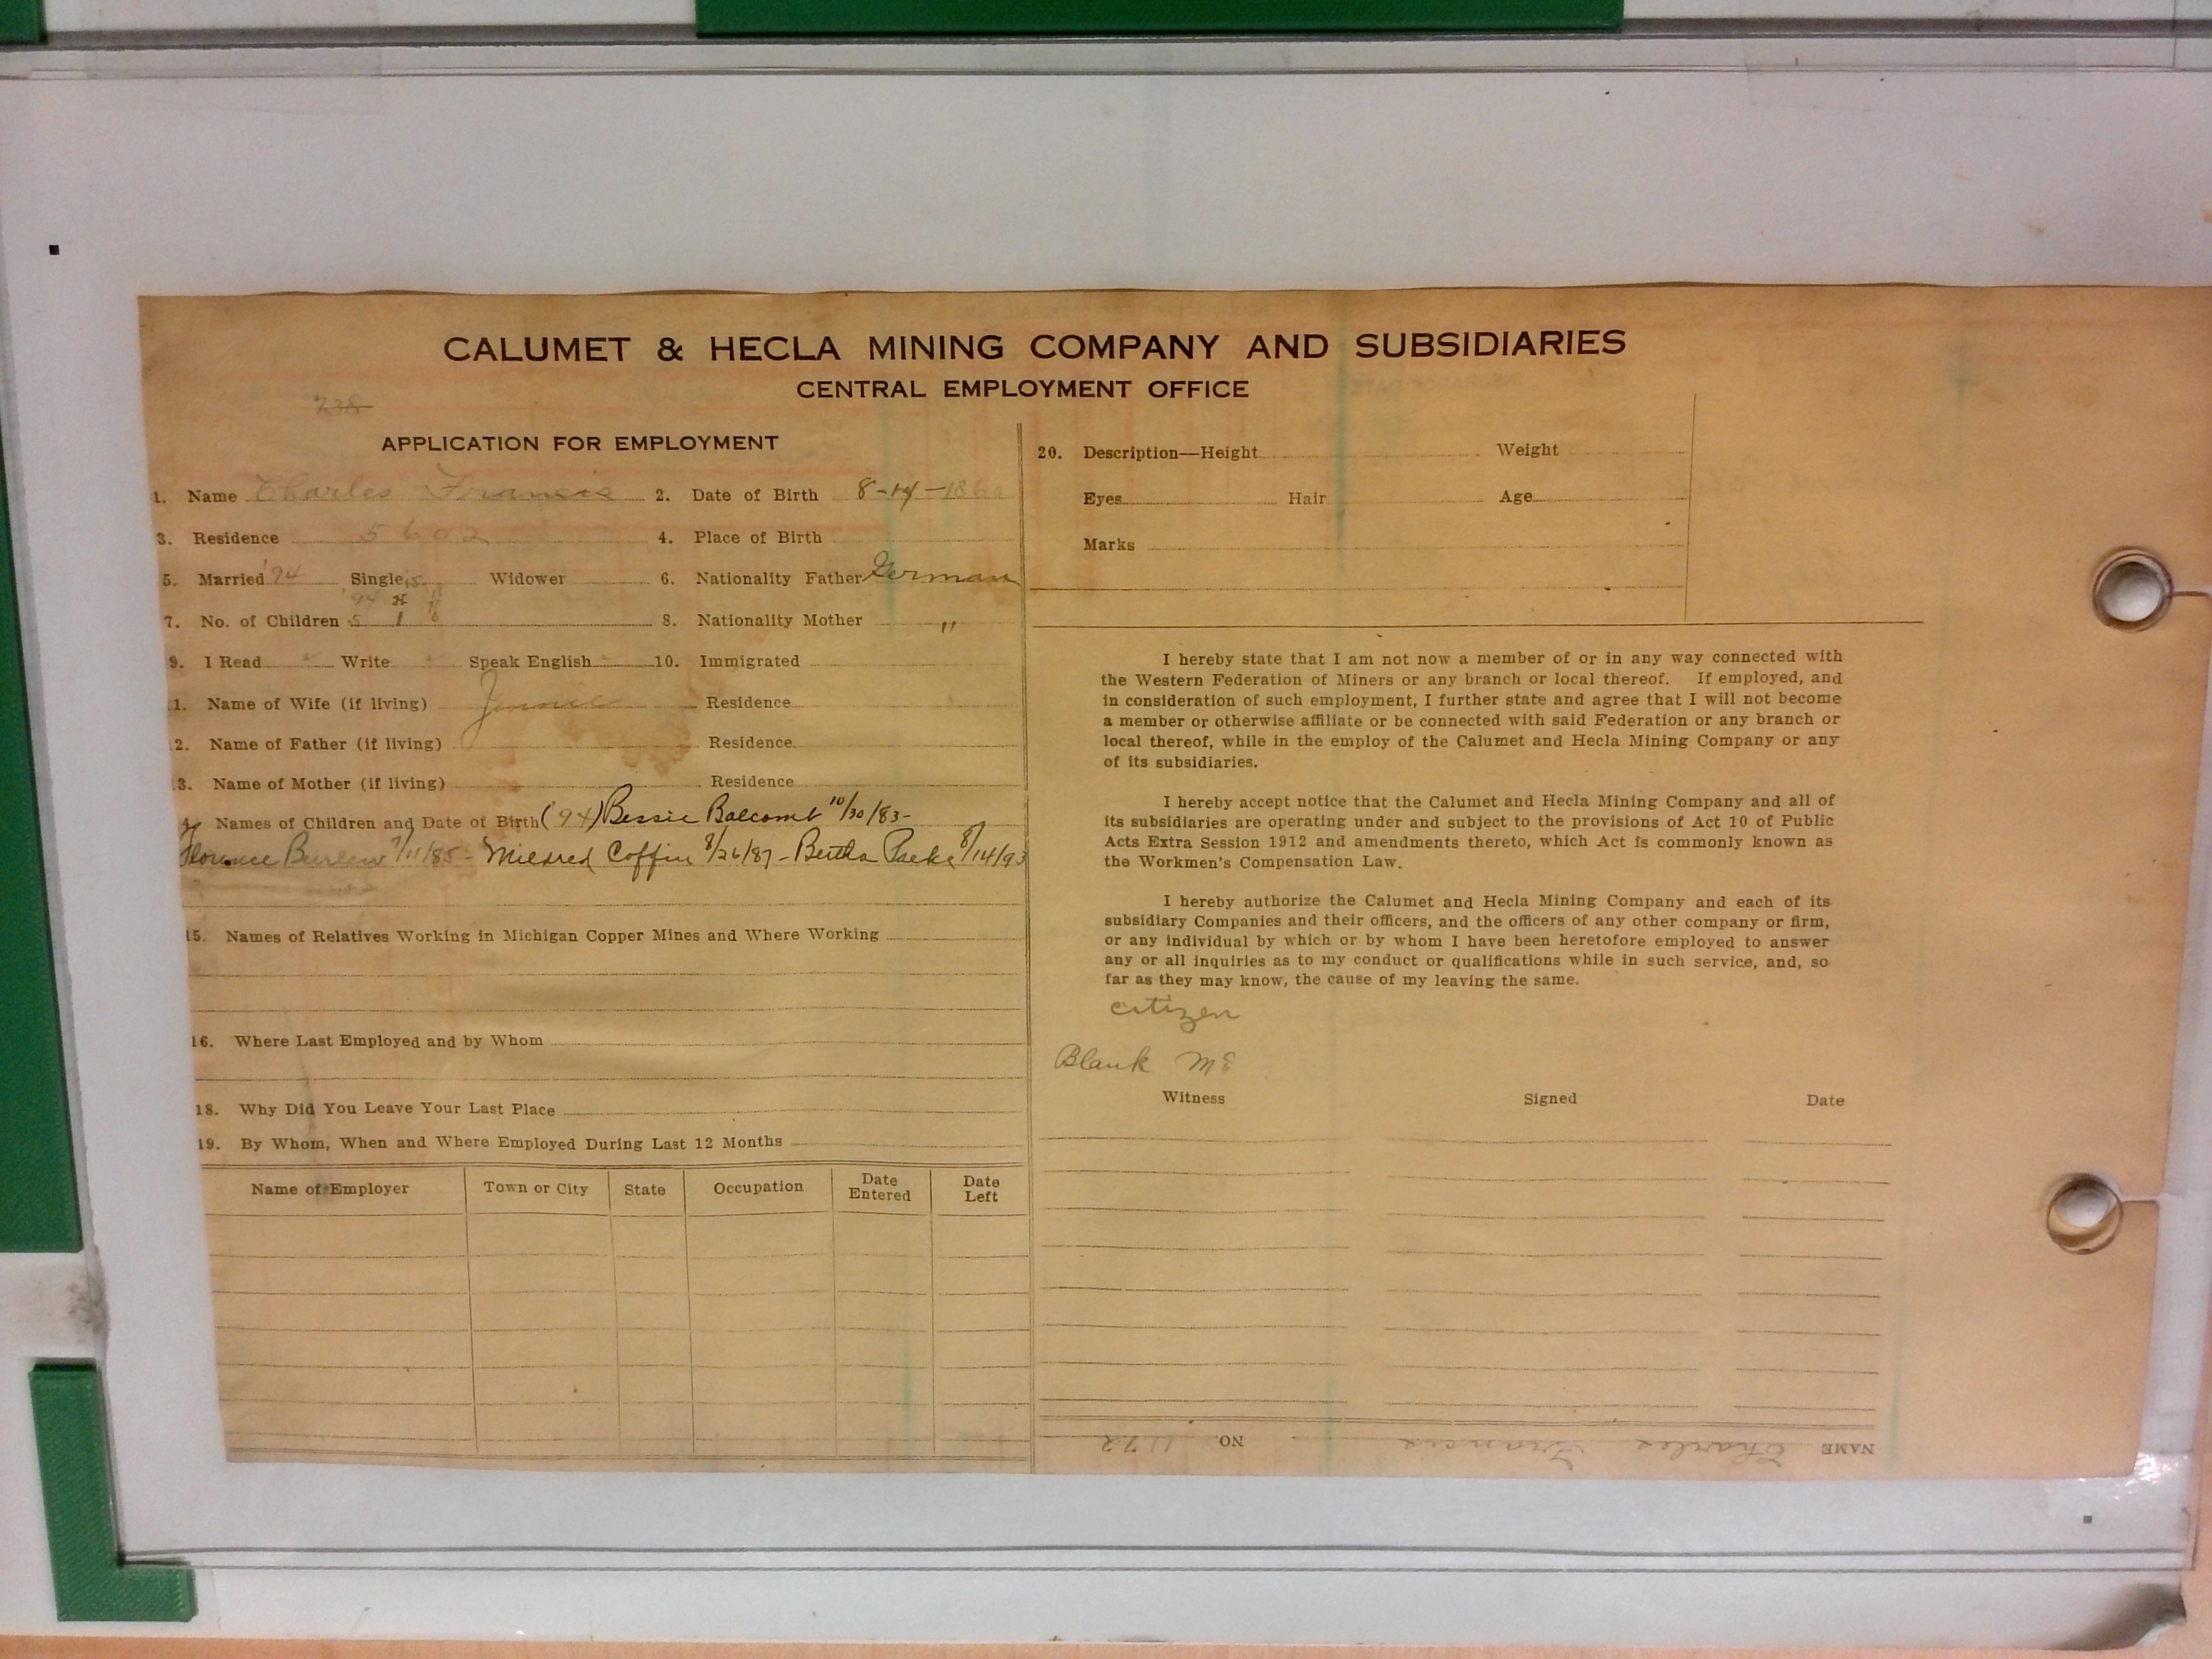 CALUMET & HECLA MINING COMPANY AND SUBSIDIARIES
CENTRAL EMPLOYMENT OFFICE
738
APPLICATION FOR EMPLOYMENT
1. Name Charles Francis 2. Date of Birth 8-14-186
3. Residence 5602 4. Place of Birth
5. Married '94 Single Widower 6. Nationality Father German
'94
7. No. of Children 5 1 8. Nationality Mother "
9. I Read Write Speak English 10. Immigrated
1. Name of Wife (if living) Jennie Residence
2. Name of Father (if living) Residence
3. Name of Mother (if living) Residence
4. Names of Children and Date of Birth ('94) Bessie Balcomb 10/30/83-
Florence Burlew 7/11/85 - Mildred Coffin 8/26/87 - Bertha 8/14/93
15. Names of Relatives Working in Michigan Copper Mines and Where Working
16. Where Last Employed and by Whom
18. Why Did You Leave Your Last Place
19. By Whom, When and Where Employed During Last 12 Months
Name of Employer Town or City State Occupation Date Entered Date Left
20. Description—Height Weight
Eyes Hair Age
Marks
I hereby state that I am not now a member of or in any way connected with
the Western Federation of Miners or any branch or local thereof. If employed, and
in consideration of such employment, I further state and agree that I will not become
a member or otherwise affiliate or be connected with said Federation or any branch or
local thereof, while in the employ of the Calumet and Hecla Mining Company or any
of its subsidiaries.
I hereby accept notice that the Calumet and Hecla Mining Company and all of
its subsidiaries are operating under and subject to the provisions of Act 10 of Public
Acts Extra Session 1912 and amendments thereto, which Act is commonly known as
the Workmen's Compensation Law.
I hereby authorize the Calumet and Hecla Mining Company and each of its
subsidiary Companies and their officers, and the officers of any other company or firm,
or any individual by which or by whom I have been heretofore employed to answer
any or all inquiries as to my conduct or qualifications while in such service, and, so
far as they may know, the cause of my leaving the same.
citizen
Blank
Witness Signed Date
NAME Charles Francis NO. 1172